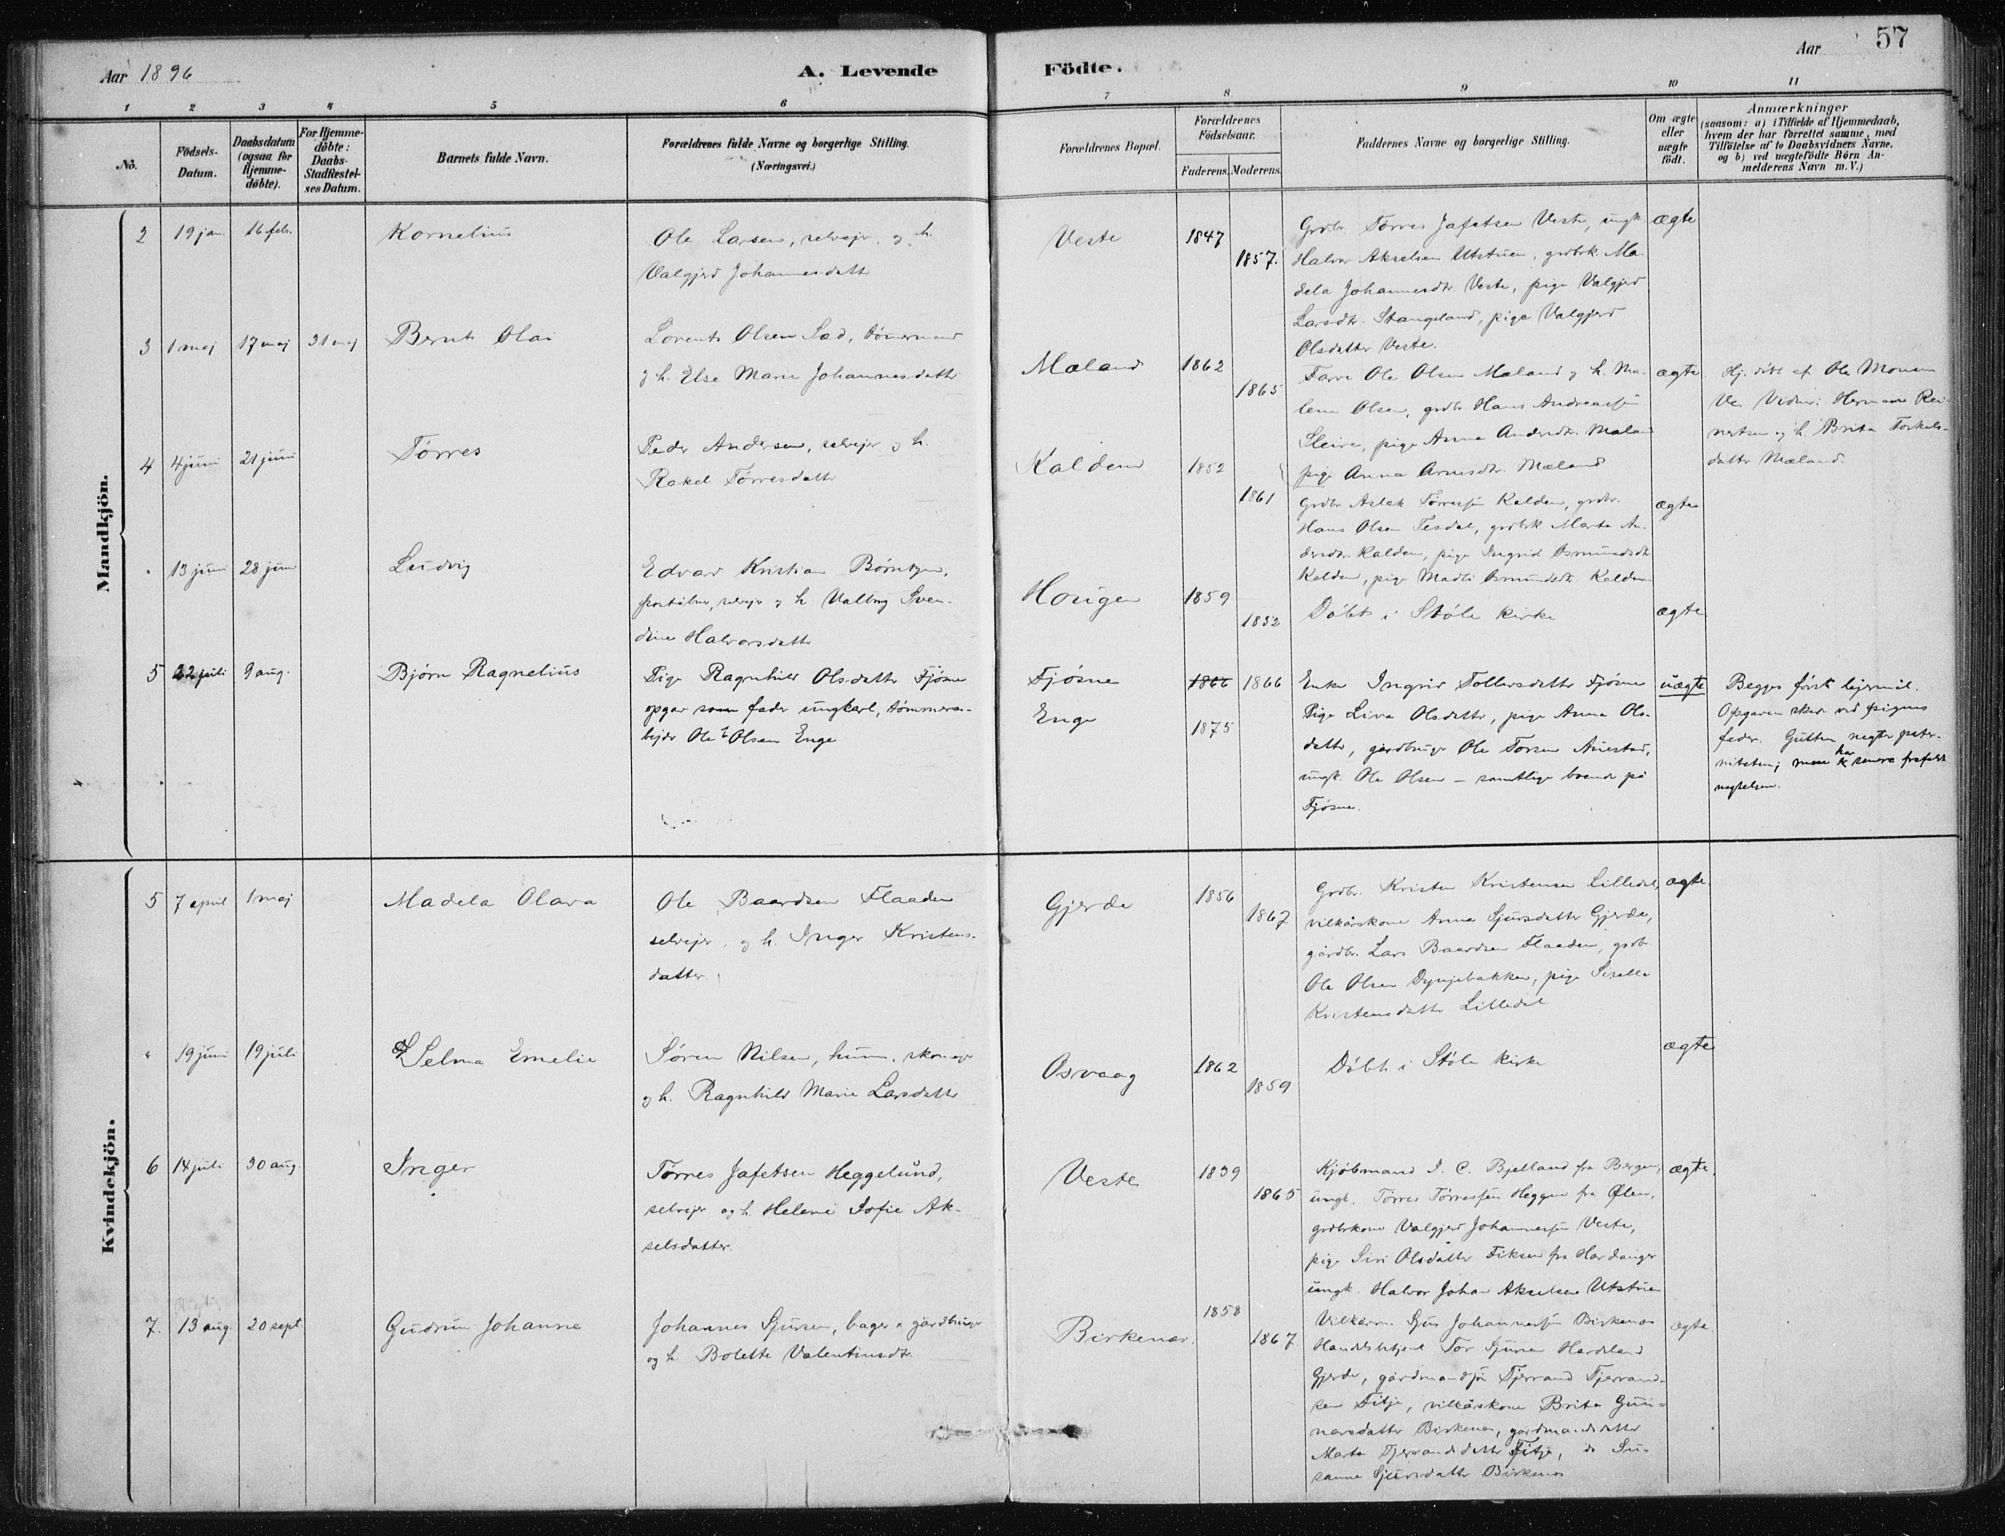 Aar 1896
A. Levende
Födte.
Aar
57
1 2 3 4 5 6 7 8 9 10 11
No.
Födsels-Datum.
Daabsdatum (ogsaa for Hjemme-döbte).
For Hjemme-döbte: Daabs-Stadfæstel-ses Datum.
Barnets fulde Navn.
Forældrenes fulde Navne og borgerlige Stilling.
(Næringsvei.)
Forældrenes Bopæl.
Forældrenes Födselsaar.
Faderens. Moderens.
Faddernes Navne og borgerlige Stilling.
Om ægte eller uægte födt.
Anmærkninger
(saasom: a) i Tilfælde af Hjemmedaab,
hvem der har forrettet samme, med
Tilföielse af to Daabsvidners Navne.
og b) ved uægtefödte Börn An-
melderens Navn m.V.)
Mandkjön.
2 19 jan 16 feb. Kornelius
Ole Larsen, selvejr. og h.
Valgjerd Johannesdatter
Veste 1847 1857.
Grdbr. Tørres Jafetsen Veste, ungk.
Halvor Akselsen Utstuen, grdbrk. Ma-
dela Johannesdtr. Veste, pige Valgjerd
Larsdtr. Stangeland, pige Valgjerd
Olsdatter Veste.
ægte
3 1 maj 17 maj 31 maj Bernt Olai
Lorents Olsen Sæd, tømermand
og h. Else Marie Johannesdatter
Mæland 1862 1865
Farre Ole Olsen Mæland og h. Ma-
lene Olsen, grdbr. Hans Andreassen
Sleire, pige Anna Andersdtr. Mæland
pige Anna Arnesdtr. Mæland
ægte
Hj. døbt af Ole Monsen
Ve. Vidner: Herman Rei-
nertsen og h. Brita Torkels-
datter Mæland.
4 4 juni 21 juni Tørres
Peder Andersen, selvejr og h.
Rakel Tørresdatter
Kalden 1852 1861
Grdbr. Aslak Tørressen Kalden, grdbr.
Hans Olsen Tesdal, grdbrk Marta An-
dersdtr. Kalden, pige Ingrid Osmundsdtr.
Kalden, pige Madli Osmundsdtr. Kalden
ægte
" 13 juni 28 juni Ludvig
Edvar Kristian Børntzen,
selvejr og h. Valbrg Sven-
dine Halvorsdatter
Hougen 1859 1852
Døbt i Støle kirke
ægte
5 22 juli 9 aug. Bjørn Ragnelius
Pige Ragnhild Olsdatter Fjøsne
opgav som fader ungkarl, tømmerar-
bejder Ole Olsen Enge
Fjøsne 1866 1866
Enge 1875
Enke Ingrid Tollevsdatter Fjøsne
Pige Liva Olsdatter, pige Anna Ols-
datter, gårdbruger Ole Torsen Auestad,
ungk. Ole Olsen – samtlige boende på
Fjøsne.
uægte
Begges første lejermål.
Opgaven sker ved pigens
fader. Gutten negter pater-
niteten; men har senere frafaldt
negtelsen.
Kvindekjön.
5 7 april 1 maj Madela Olava
Ole Baardsen Flaaden
selvejer, og h. Inger Kristens-
datter.
Gjerde 1856 1867
Grdbr. Kristen Kristensen Lilledal,
vilkårskone Anna Sjursdatter Gjerde,
gårdbr. Lars Baardsen Flaaden, grdb.
Ole Olsen Dynjebakken, pige Sisella
Kristensdatter Lilledal
ægte
" 19 juni 19 juli Selma Emelie
Søren Nilsen, husm. skomager
og h. Ragnhild Marie Larsdatter
Osvaag 1862 1859
Døbt i Støle kirke
ægte
6 14 juli 30 aug. Inger
Tørres Jafetsen Heggelund,
selvejer og h. Helene Sofie Ak-
selsdatter.
Veste 1839 1865
Kjøbmand I. C. Bjelland fra Bergen,
ungk. Tørres Tørressen Heggen fra Ølen,
grdbrkone Valgjerd Johannesen Veste,
pige Siri Olsdatter Fiksen fra Hardanger
ungk. Halvor Johan Akselsen Utstuen
ægte.
7. 13 aug. 20 sept Gudrun Johanne
Johannes Sjursen, bager & gårdbruger
og h. Bolette Valentinsdtr.
Birkenes. 1858 1867
Vilkårm. Sjur Johannessen Birkenes
Handelsbetjent Tor Sjursen Hardeland
Gjerde, gårdmandssøn Tjerrand Tjerrand-
sen Fitje, vilkårskone Brita Gun-
narsdatter Birkenes, gårdmandsdatter
Marta Tjerrandsdatter Fitje, do Su-
sanne Sjursdatter Birkenes
ægte